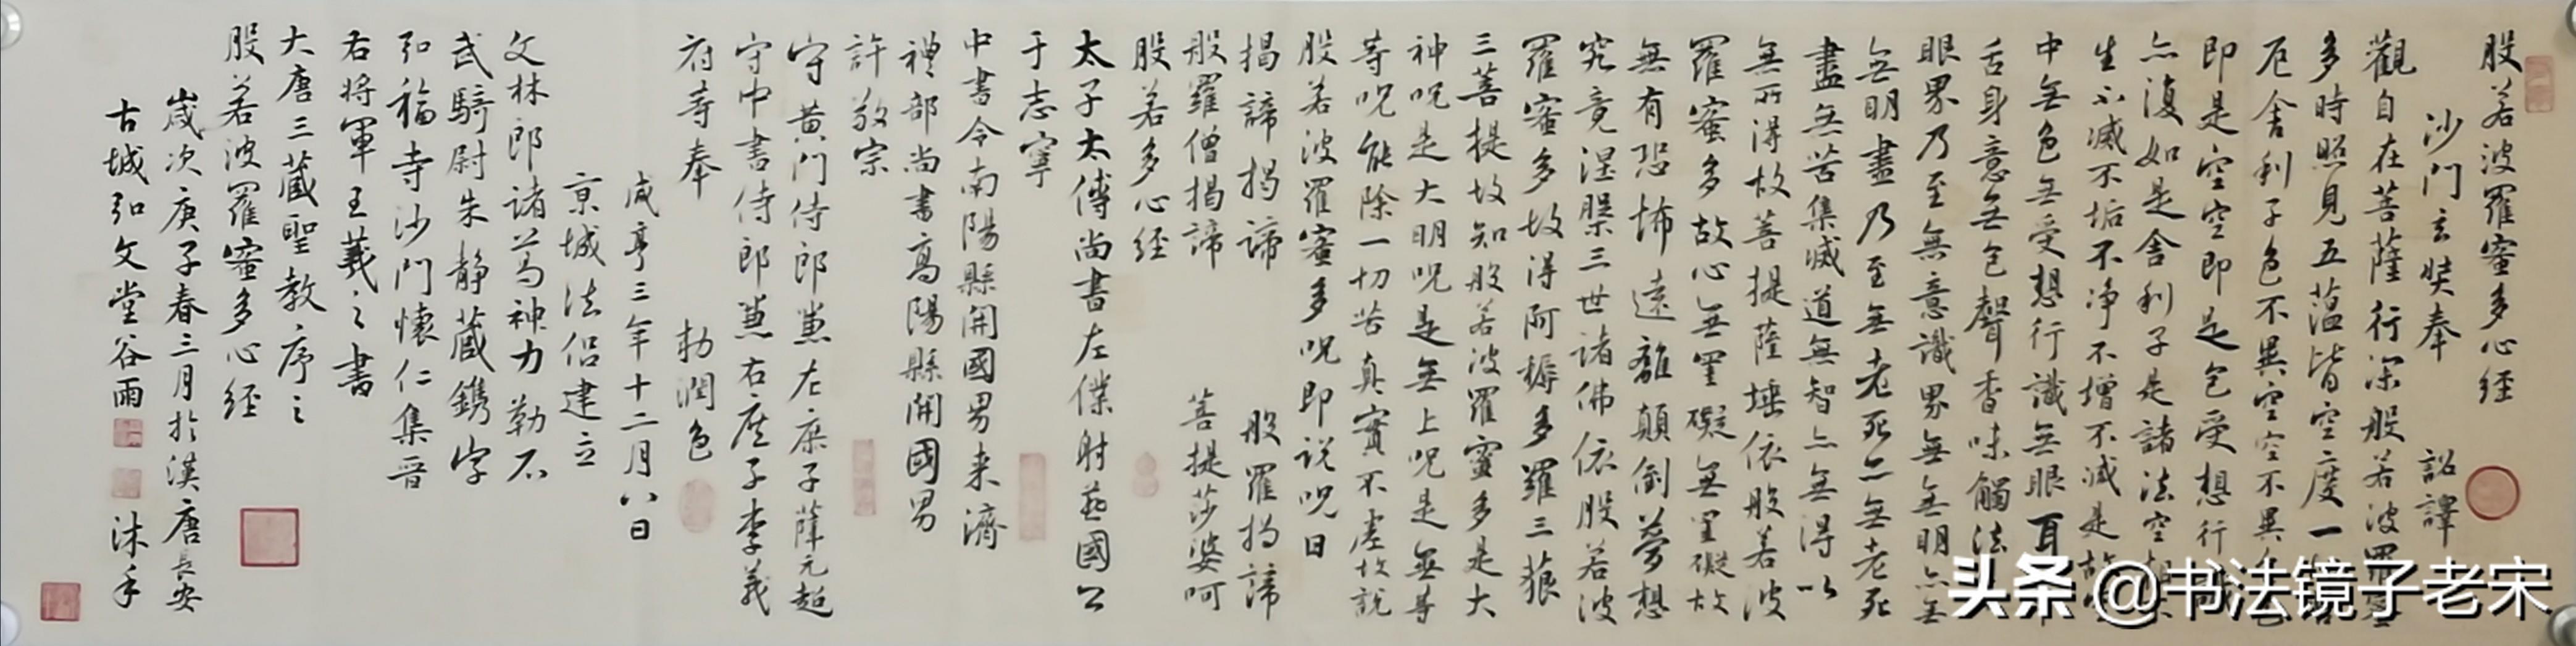 般若波羅蜜多心経
沙門玄奘奉 詔譯
觀自在菩薩行深般若波羅蜜
多時照見五蕴皆空度一切苦
厄舍利子色不異空空不異色
即是空空即是色受想行
亦復如是舍利子是諸法空相
生不滅不垢不净不增不减是故空
中無色無受想行識無眼耳
舌身意無色聲香味觸法
眼界乃至無意識界無無明亦無
無明盡乃至無老死亦無老死
盡無苦集滅道無智亦無得以
無所得故菩提薩埵依般若波
羅蜜多故心無罣礙無罣礙故
無有恐怖遠離顛倒夢想
究竟涅槃三世諸佛依般若波
羅蜜多故得阿耨多羅三藐
三菩提故知般若波羅蜜多是大
神呪是大明呪是無上呪是無等
等呪能除一切苦真實不虛故説
般若波羅蜜多呪即说呪曰
揭諦揭諦 般羅揭諦
般羅僧揭諦 菩提莎婆呵
般若多心経
太子太傅尚書左僕射燕國公
于志寧
中書令南陽縣開國男来濟
禮部尚書高陽縣開國男
許敬宗
守黄門侍郎兼左庶子薛元超
守中書侍郎兼右庶子李義
府等奉 勅潤色
咸亨三年十二月八日
京城法侣建立
文林郎諸葛神力勒石
武騎尉朱静藏鐫字
弘福寺沙門懷仁集晋
右将軍王羲之書
大唐三藏聖教序之
般若波羅蜜多心経
歲次庚子春三月於漢唐長安
古城弘文堂谷雨 沐手
头条 @书法镜子老宋